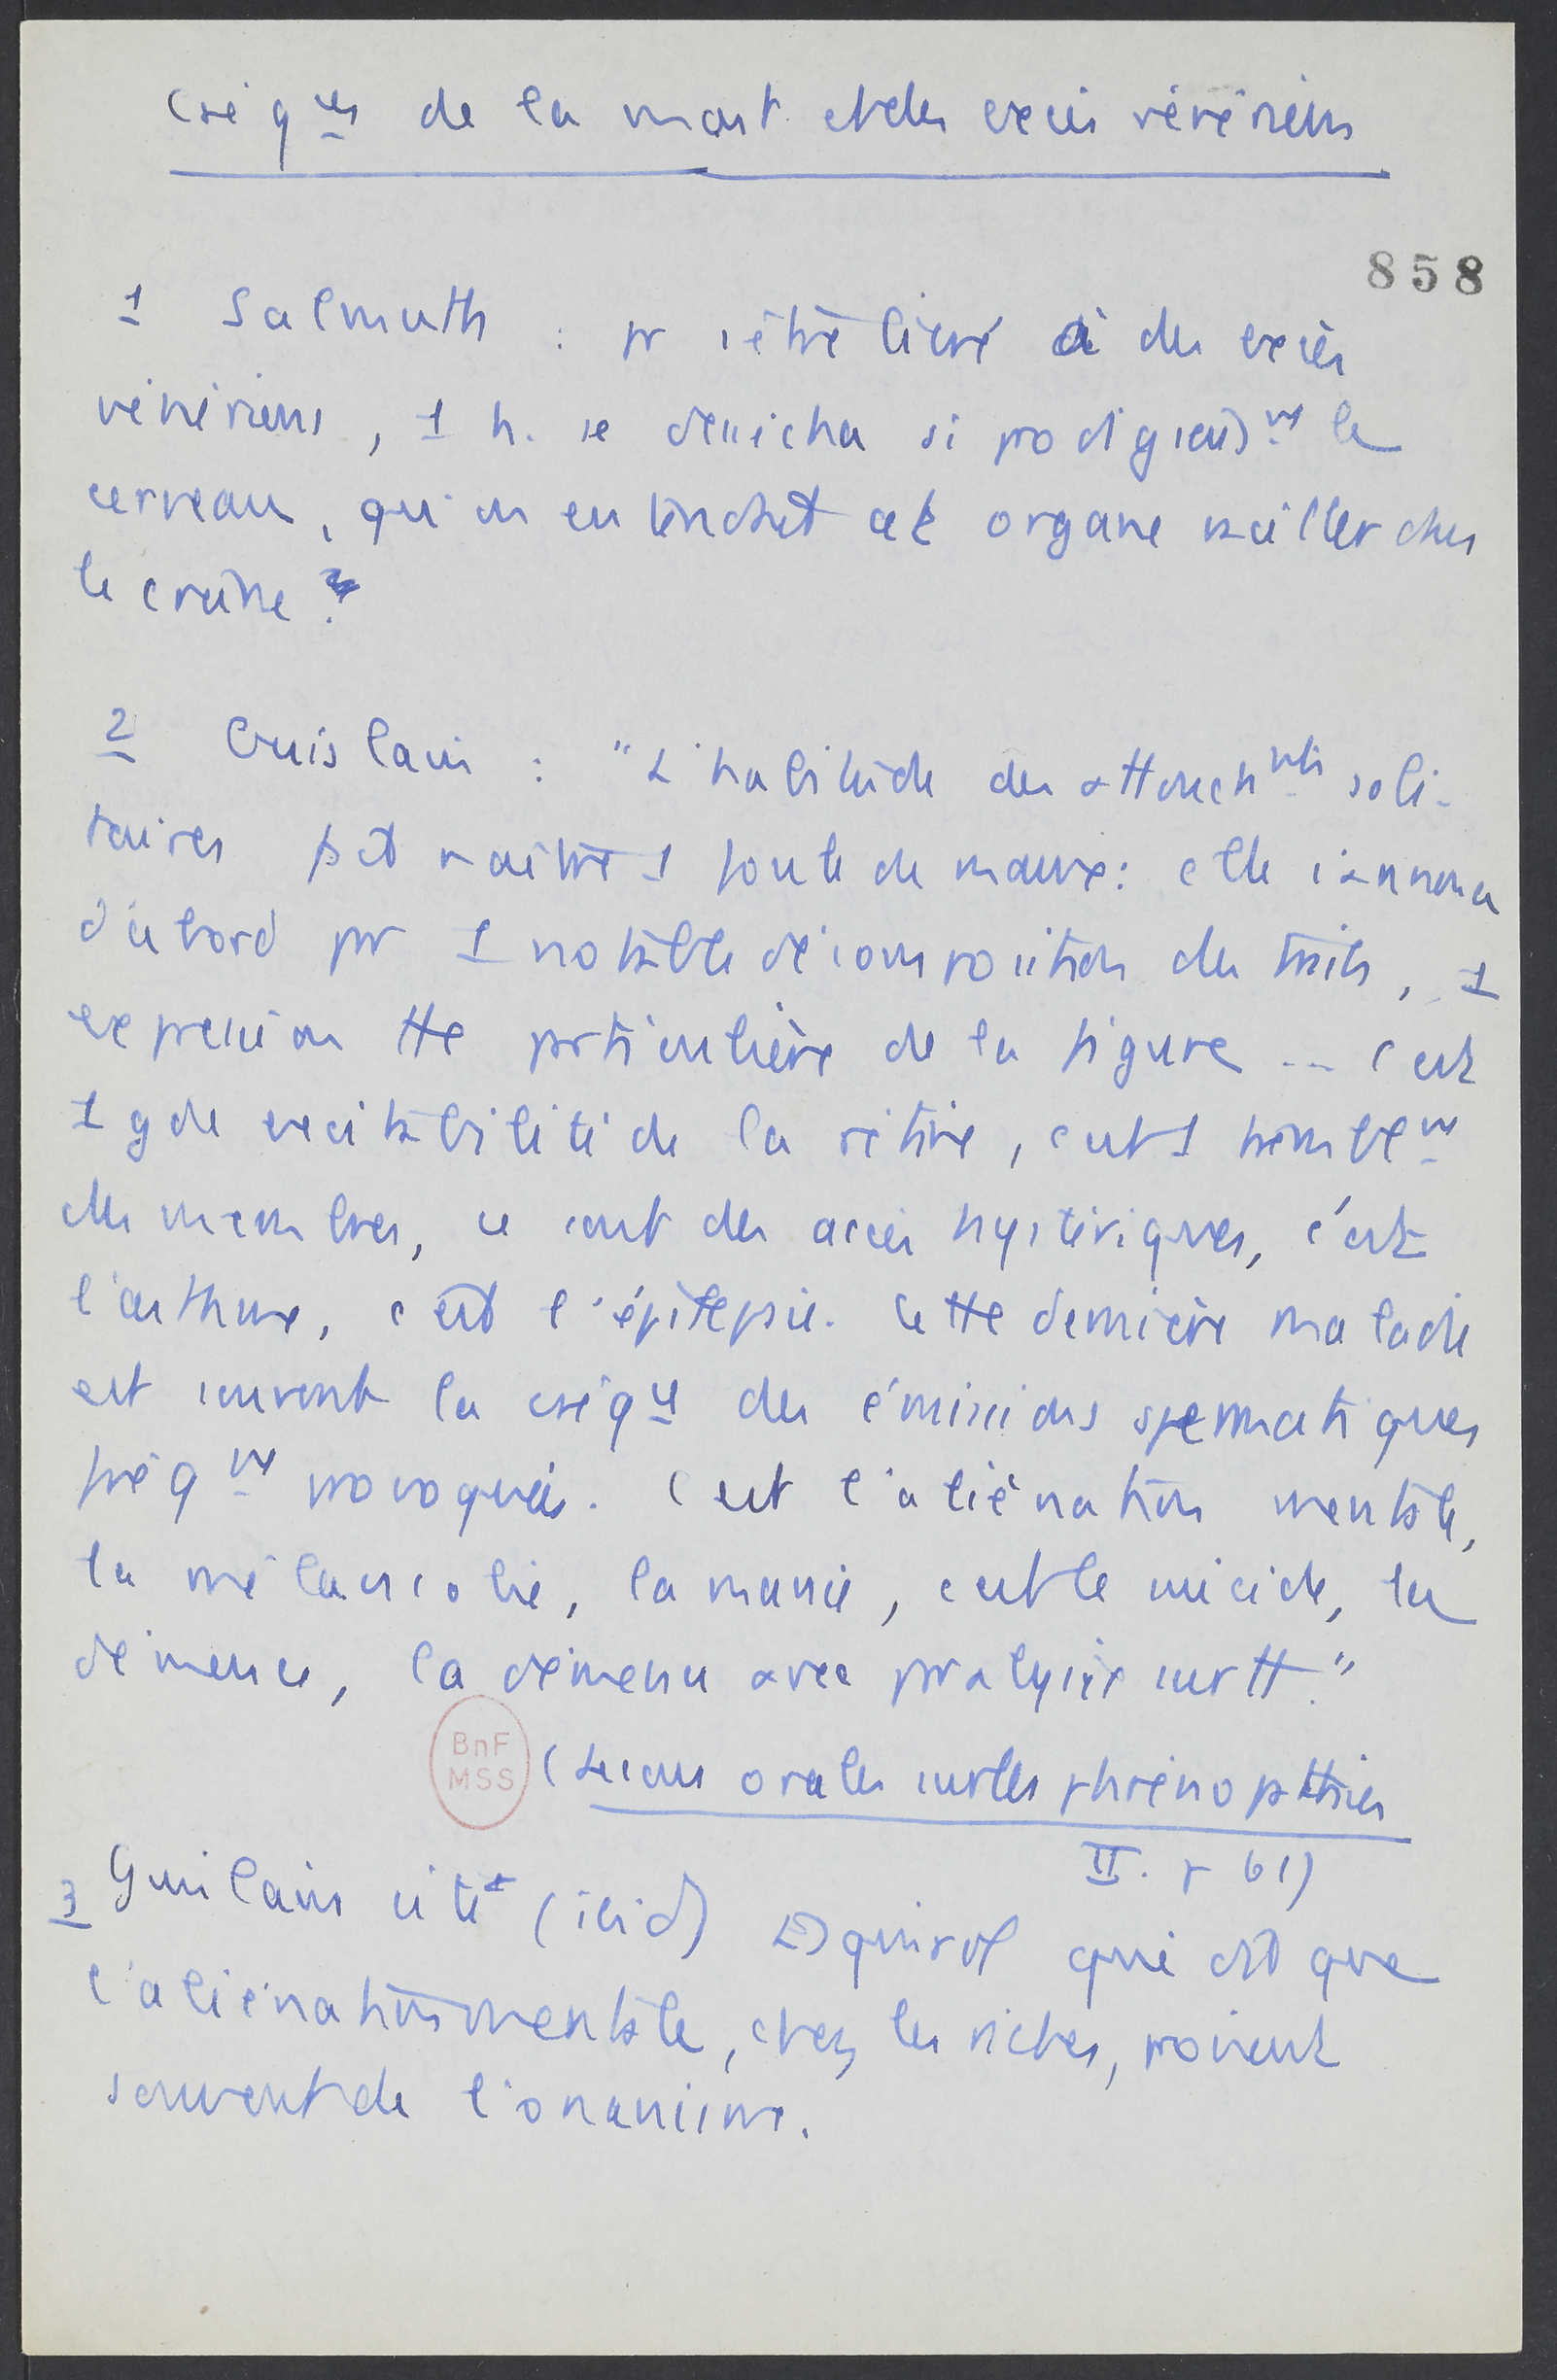 cséqces de la mast. et des excès vénériens
858
1 Salmuth : pr s'être livré à des excès
vénériens, 1 h. se dessécha si prodigieusmt le
cerveau, qu'on entendait cet organe osciller dans
le crâne.
2 Guislain : "L'habitude des attouchmts soli-
taires fait naître 1 foule de maux: elle s'annonce
d'abord pr 1 notable décomposition des traits, 1
expression tte particulière de la figure ... C'est
1 gde excitabilité de la rétine, c'est 1 tremblemt
des membres, ce sont des accès hystériques, c'est
l'asthme, c'est l'épilepsie. Cette dernière maladie
est souvent la cséqce des émissions spermatiques
fréqmt provoquées. C'est l'aliénation mentale,
la mélancolie, la manie, c'est le suicide, la
démence, la démence avec paralysie surtt."
BnF
MSS
(Leçons orales sur les phrénopathies
II. p 61)
3 Guislain cite (ibid) Esquirol qui dit que
l'aliénation mentale, chez les riches, provient
souvent de l'onanisme.